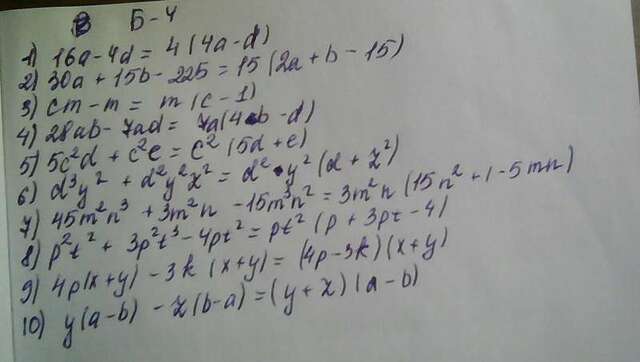 Б-4
1) 16a-4d = 4(4a-d)
2) 30a + 15b - 225 = 15(2a+b-15)
3) cm - m = m(c-1)
4) 28ab - 7ad = 7a(4b-d)
5) 5c²d + c²e = c²(5d+e)
6) d³y² + d²y²z² = d²y²(d+z²)
7) 45m²n³ + 3m²n - 15m³n² = 3m²n(15n²+1-5mn)
8) p²t² + 3p²t³ - 4pt² = pt²(p+3pt-4)
9) 4p(x+y) - 3k(x+y) = (4p-3k)(x+y)
10) y(a-b) - z(b-a) = (y+z)(a-b)